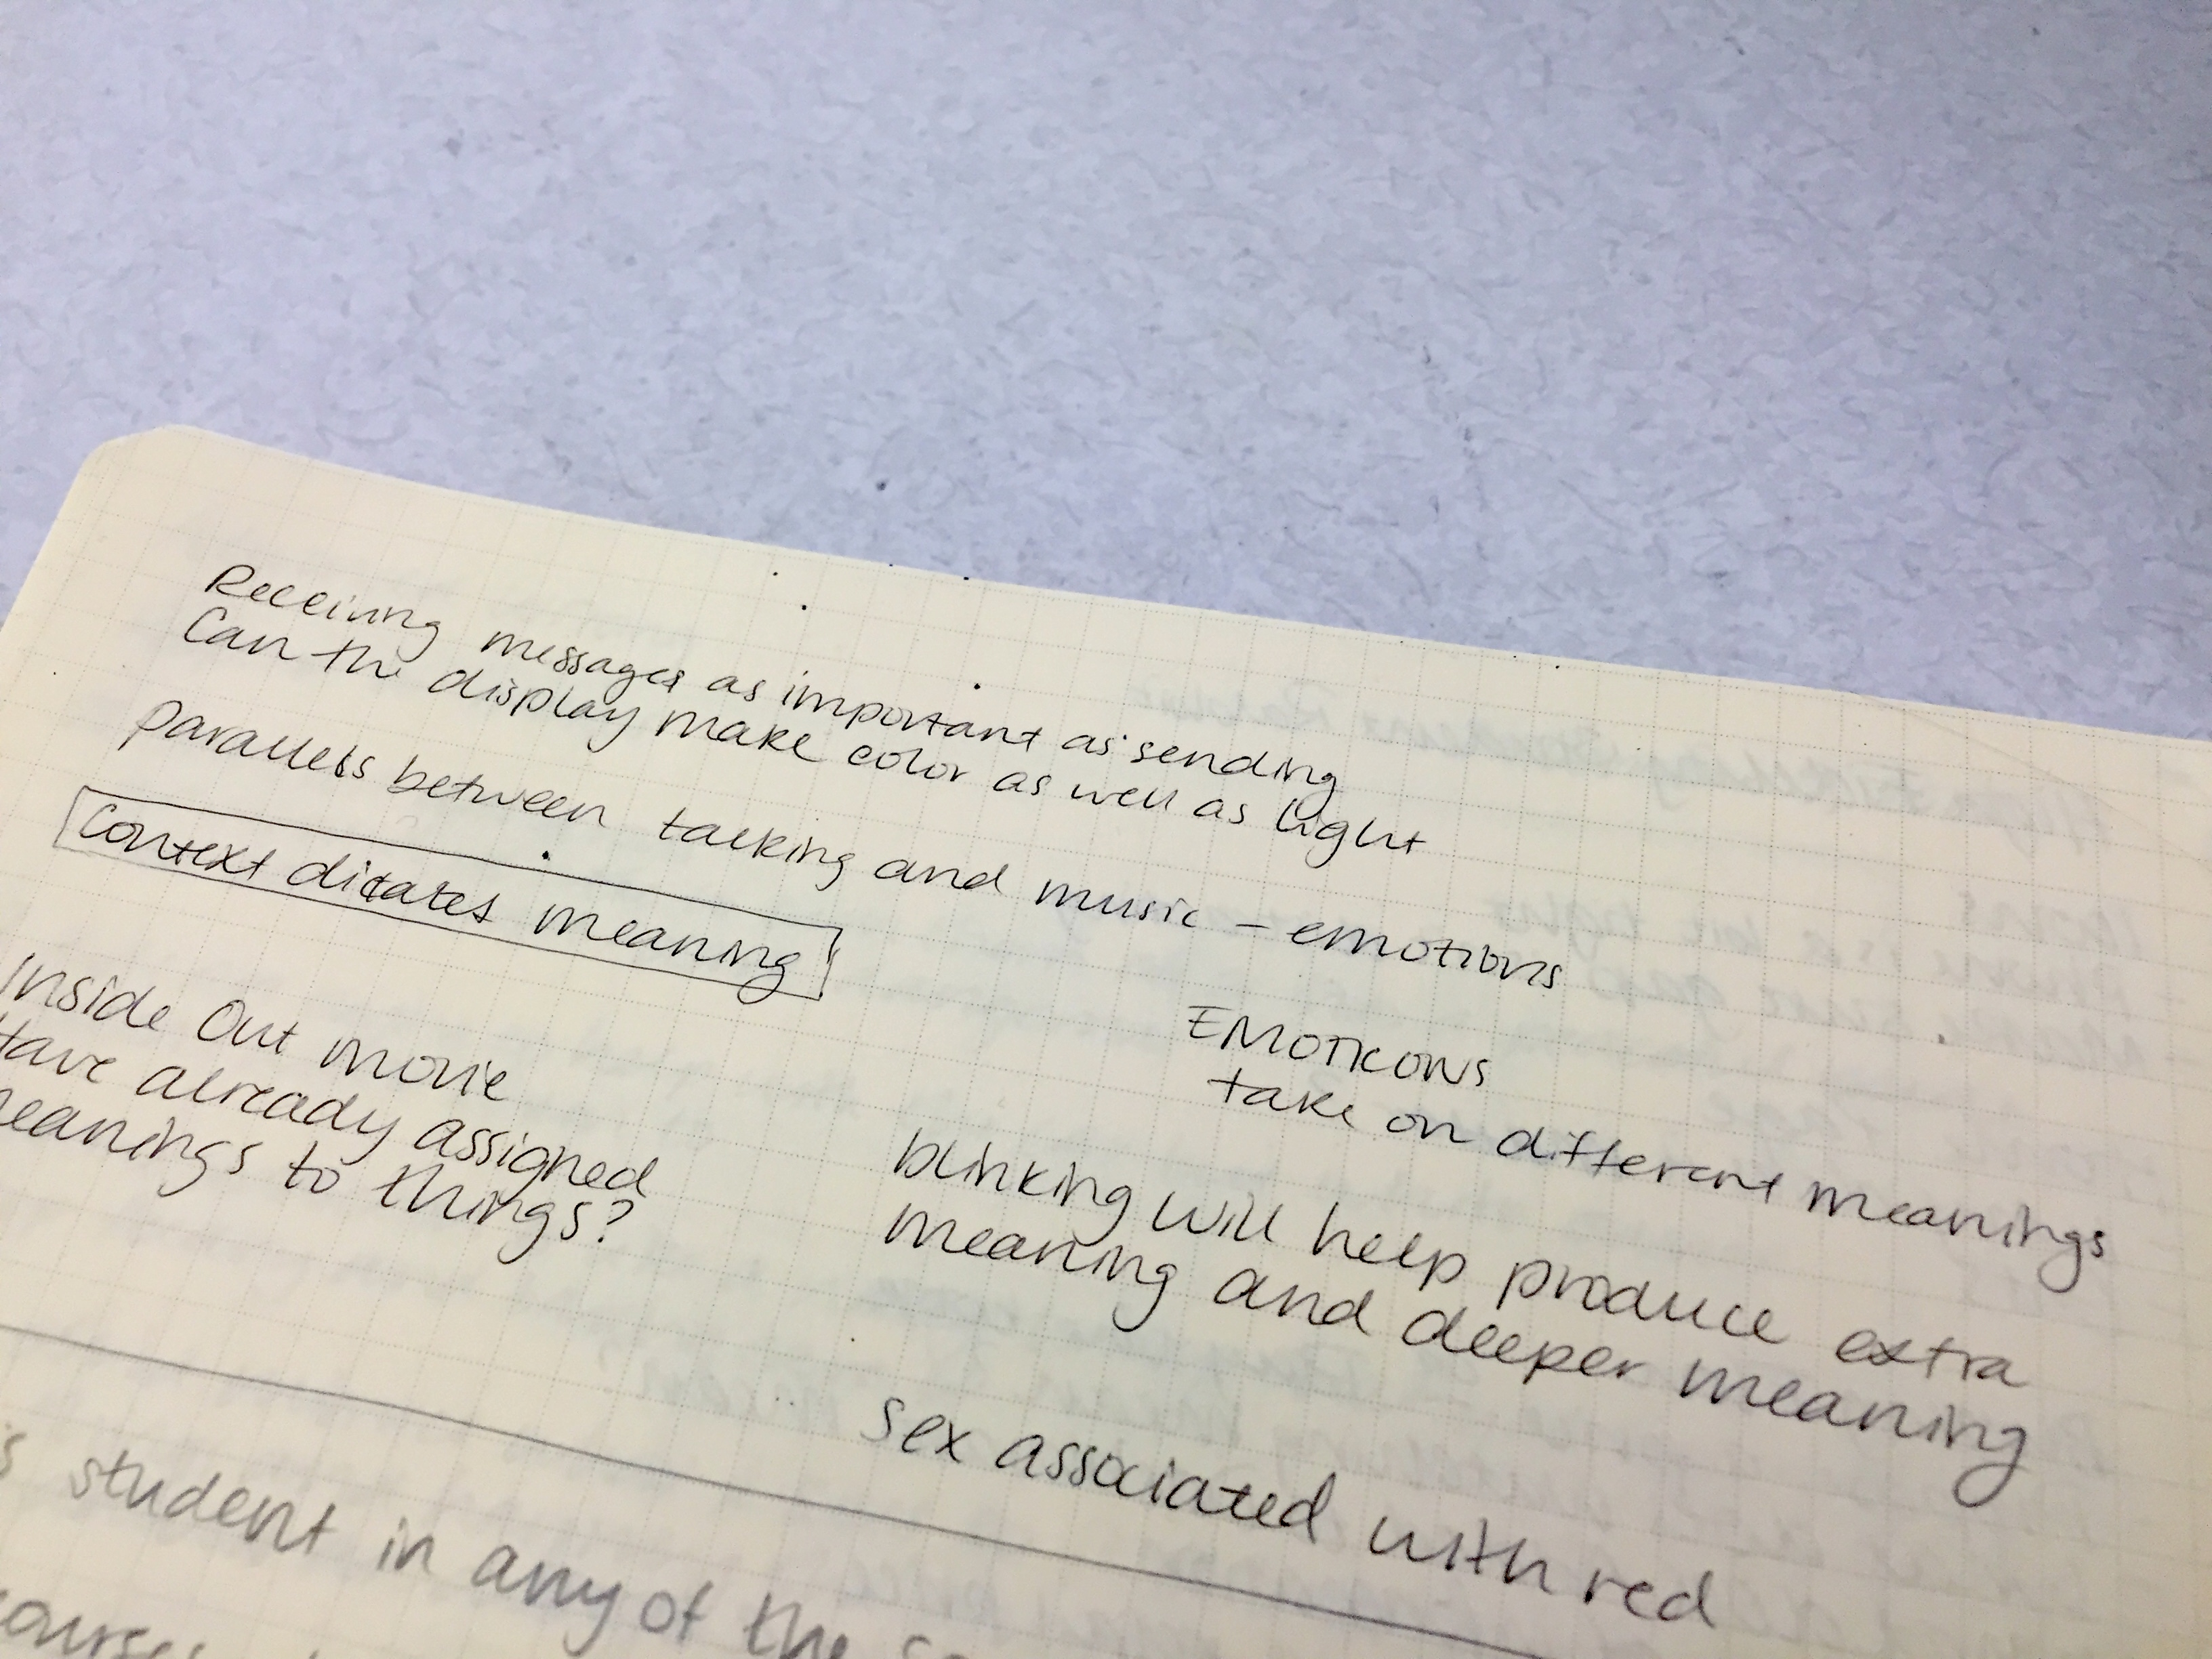 Receiving messages as important as sending
Can the display make color as well as light
parallels between talking and music - emotions
Context dictates meaning
Inside Out movie
Have already assigned
meanings to things?
EMOTICONS
take on different meanings
blinking will help produce extra
meaning and deeper meaning
sex associated with red
student in any of the